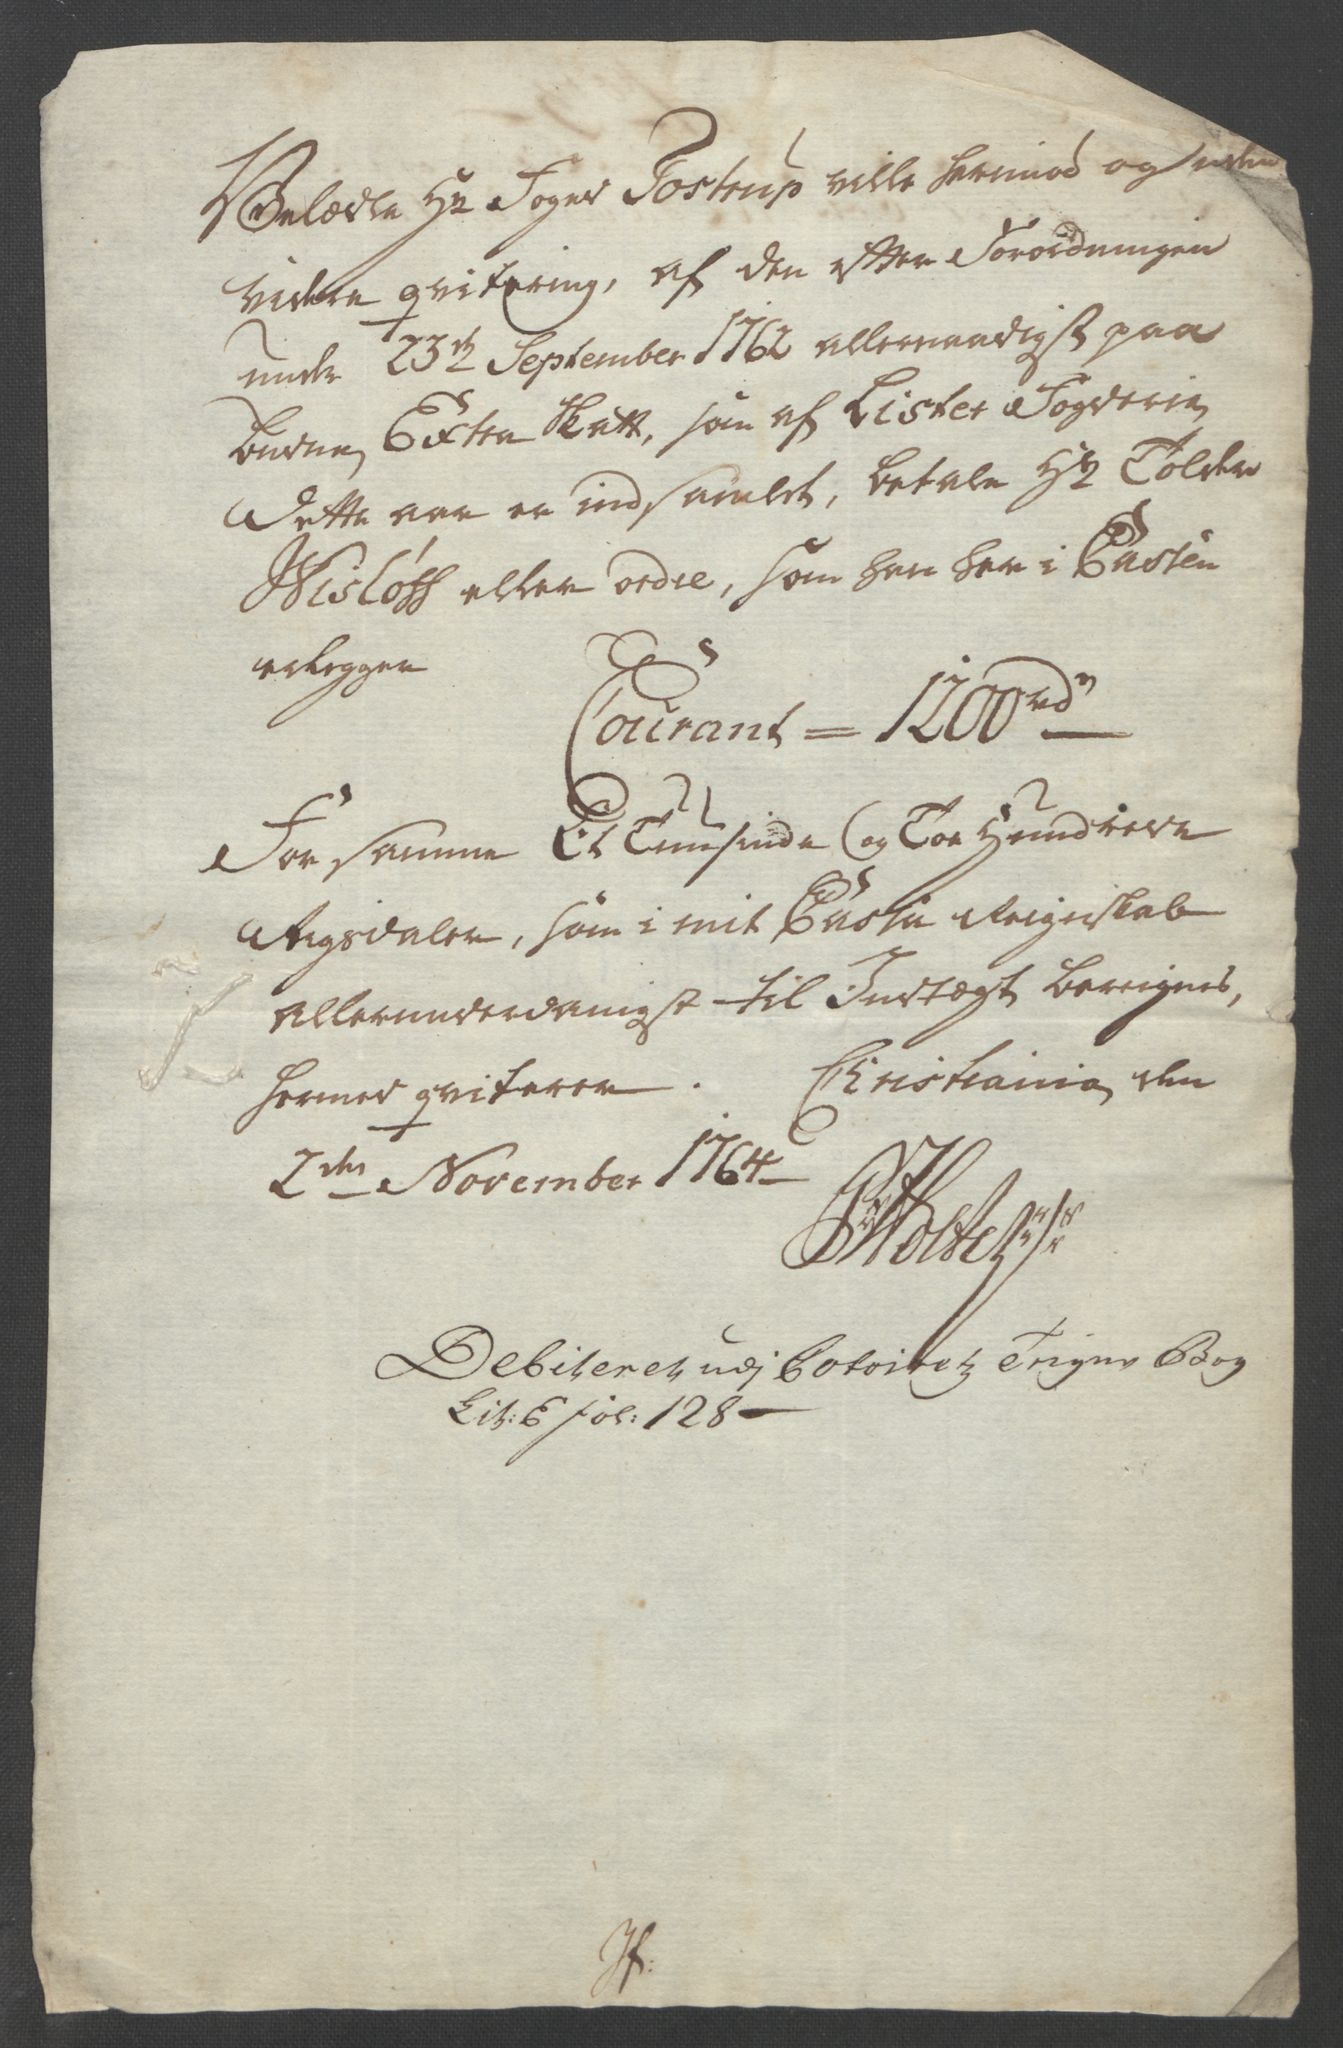 Velædle Hr Foged Tostrup ville hermod og uden
videre qvitering, af den efter Forordningen
under 23de September 1762 allernaadigst paa
budne Extra Skatt, som af Lister Fogderie
dette aar er indsamlet, betale Hr Tolder
Wisløff eller ordre, som han her i Cassen
erlegger
Courant = 1200rdr
For samme Et Tuusinde og Toe Hundrede
Rigsdaler, som i mit Cassa Reigenskab
allerunderdanigst til Indtægt bereignes,
hermed qviterer. Christiania den
2den November 1764
PHolter
Debiteret udj Contoiretz Reigns Bog
Lit: E fol: 128